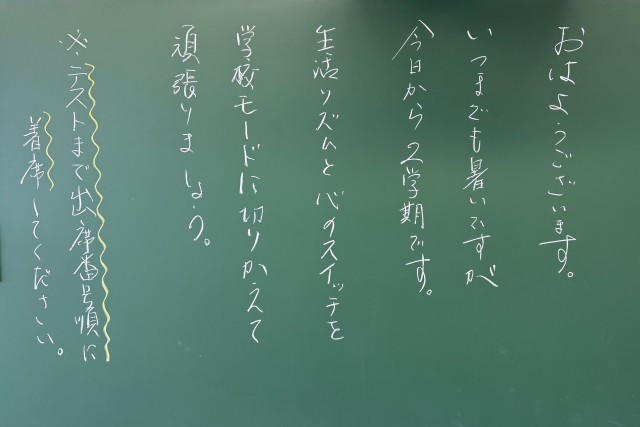 おはようございます。
いつまでも暑いですが
今日から2学期です。
生活リズムと心のスイッチを
学校モードに切りかえて
頑張りましょう。
※テストまで出席番号順に
着席してください。